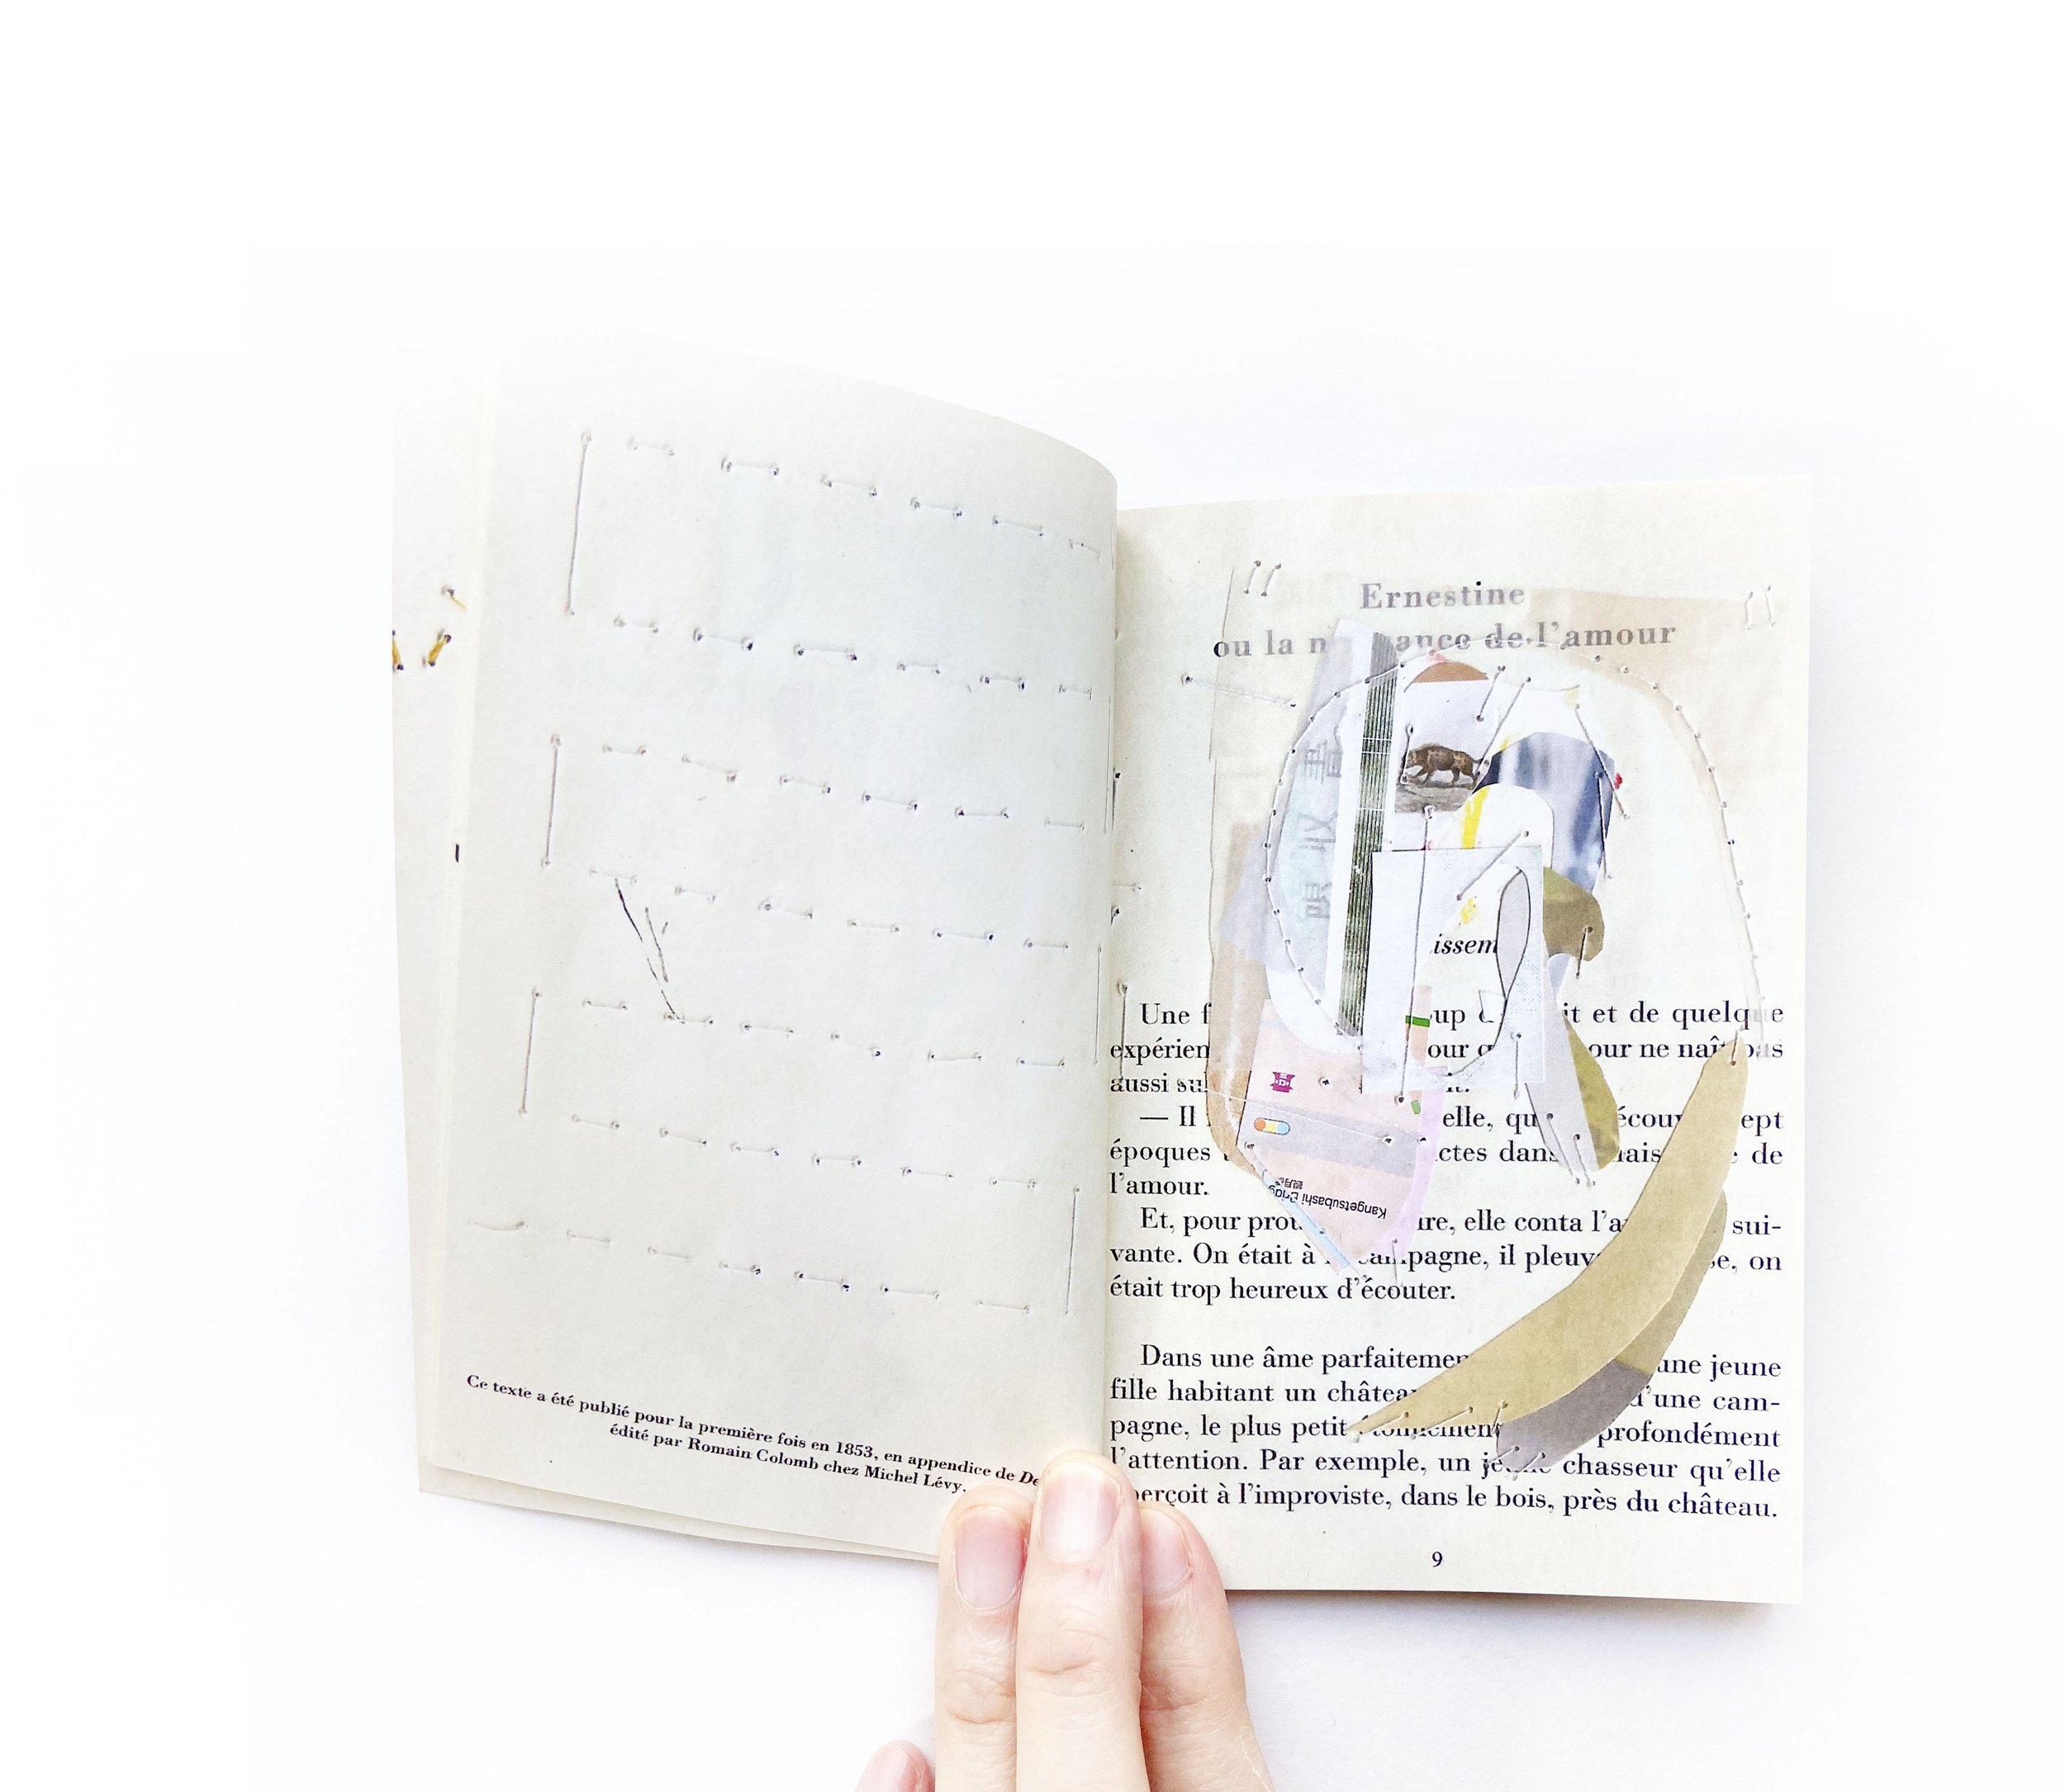 Ce texte a été publié pour la première fois en 1853, en appendice de De
édité par Romain Colomb chez Michel Lévy.
Ernestine
ou la n ance de l'amour
収
issem
Une f up it et de quelque
expérien our our ne naît pas
aussi su
— Il elle, qu écou ept
époques ctes dans mais de
l'amour.
Kangetsubashi Bridg
Et, pour prou ire, elle conta l'a sui-
vante. On était à campagne, il pleuv se, on
était trop heureux d'écouter.
Dans une âme parfaitemen une jeune
fille habitant un châtea d'une cam-
pagne, le plus petit étonnement profondément
l'attention. Par exemple, un jeune chasseur qu'elle
perçoit à l'improviste, dans le bois, près du château.
9